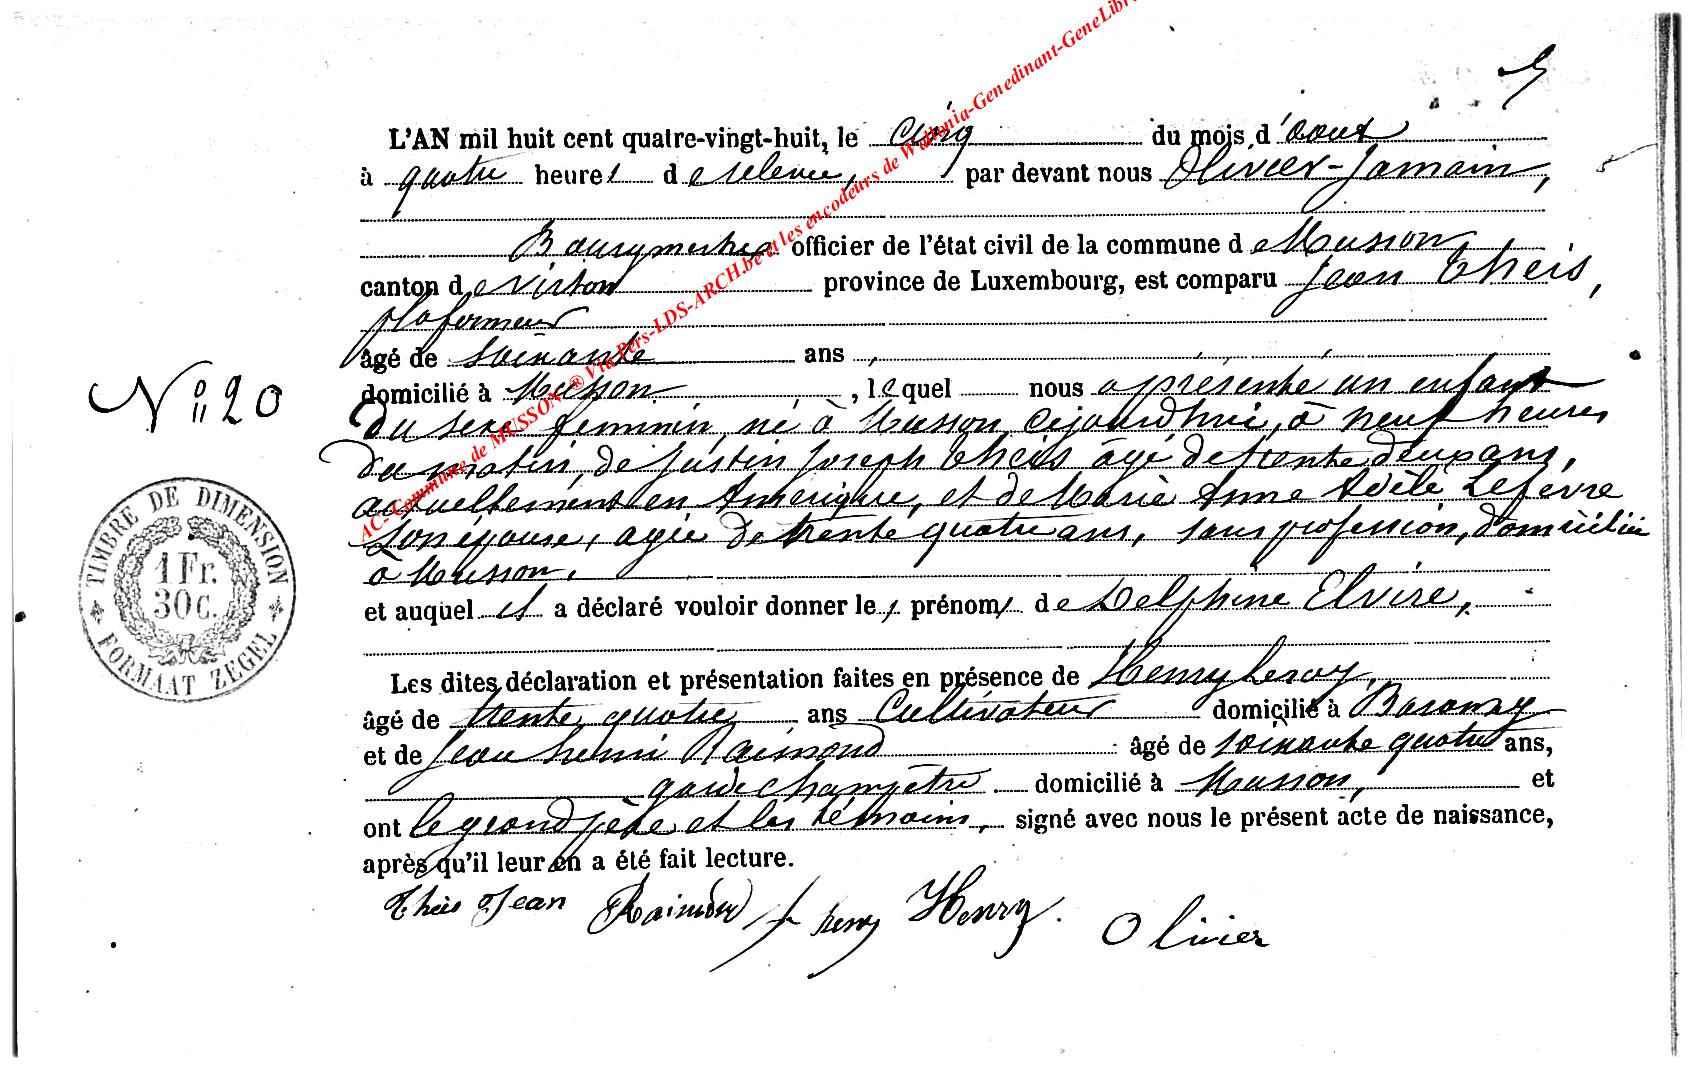 5
L'AN mil huit cent quatre-vingt-huit, le Cinq du mois d'août
à quatre heures de relevée, par devant nous Olivier-Jamain,
5
Bourgmestre officier de l'état civil de la commune de Musson,
canton de Virton province de Luxembourg, est comparu Jean Theis,
plafonneur
âgé de soixante ans,
domicilié à Musson, lequel nous a présenté un enfant
du sexe féminin, né à Musson, cejourd'hui, à neuf heures
du matin, de Justin Joseph Theis âgé de trente deux ans,
actuellement en Amérique, et de Marie Anne Adèle Lefèvre
son épouse, agée de trente quatre ans, sans profession, domiciliée
à Musson.
N° 20
et auquel il a déclaré vouloir donner les prénoms de Delphine Elvire,
TIMBRE DE DIMENSION
1 Fr.
30 C.
FORMAAT ZEGEL
Les dites déclaration et présentation faites en présence de Henry Leroy,
âgé de trente quatre ans Cultivateur domicilié à Baranzy
et de Jean henri Raimond âgé de soixante quatre ans,
garde champêtre domicilié à Musson, et
ont le grand père et les témoins, signé avec nous le présent acte de naissance,
après qu'il leur en a été fait lecture.
Theis Jean Raimond henry Henry. Olivier
AC-Commune de MUSSON ® Via Pers-LDS-ARCH.be et les encodeurs de Wallonia-Genedinant-GeneLibr